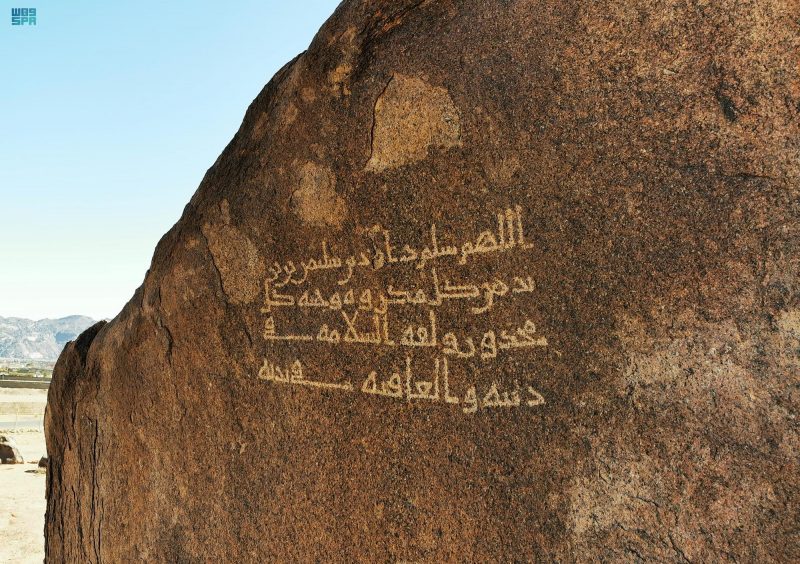 واس
SPA
اللهم سلم داود بن سلمن بن يز
يد من كل مكروه وقه كل
محذور ولقه السلامه في
دينه والعافيه في بدنه